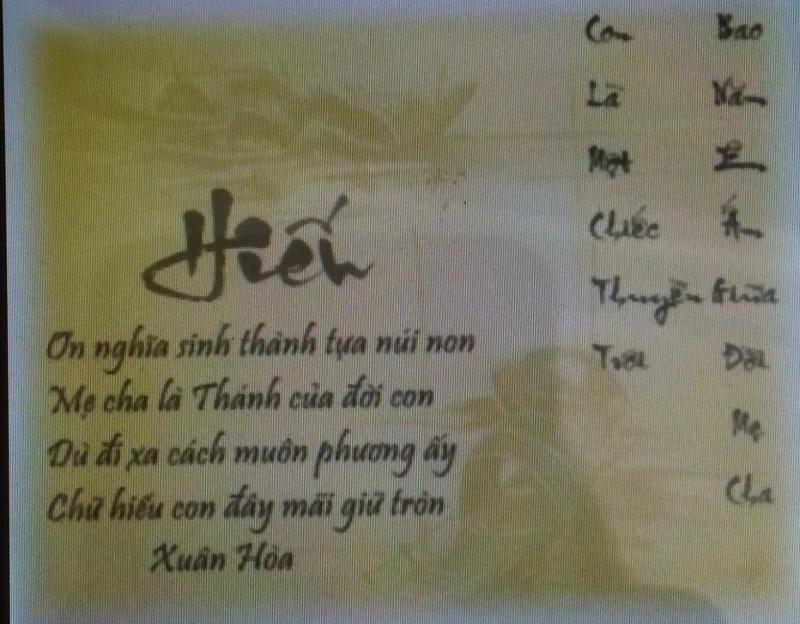 Hiếu
Ơn nghĩa sinh thành tựa núi non
Mẹ cha là Thánh của đời con
Dù đi xa cách muôn phương ấy
Chữ hiếu con đây mãi giữ tròn
Xuân Hòa
Con
Là
Một
Chiếc
Thuyền
Trôi
Bao
Năm
Êm
Ấm
Giữa
Đời
Mẹ
Cha